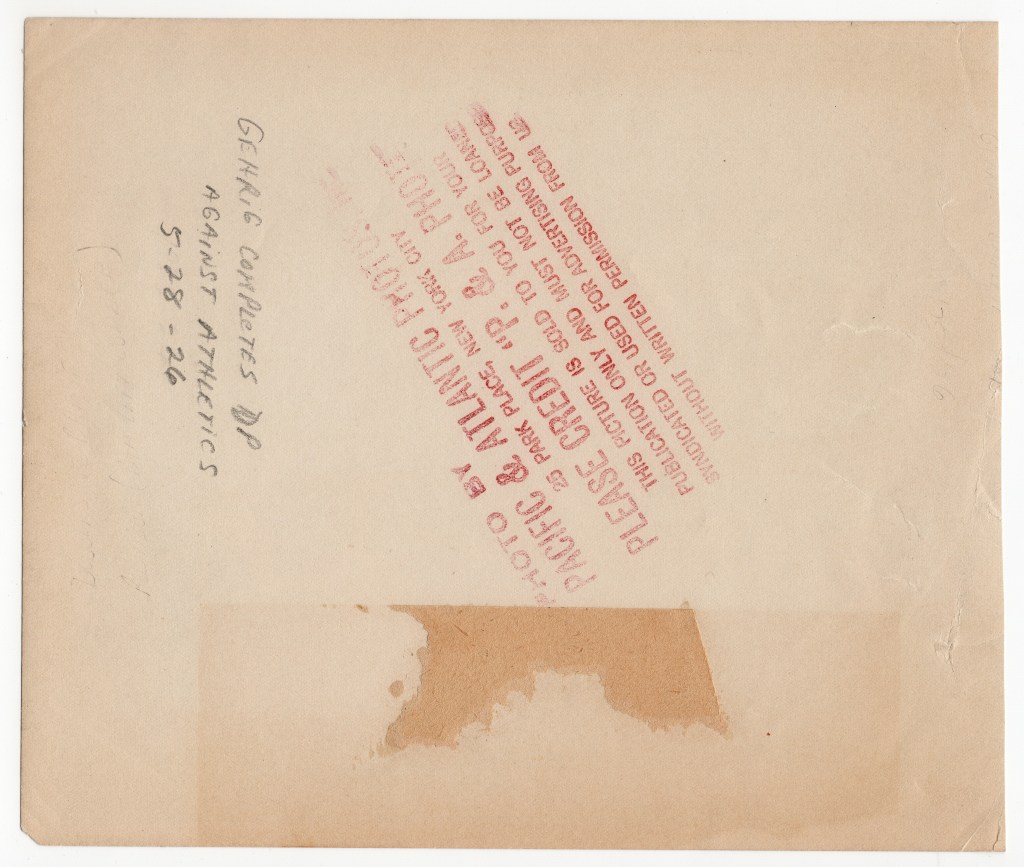 GEHRIG COMPLETES DP
AGAINST ATHLETICS
5-28-26
PHOTO BY
PACIFIC & ATLANTIC PHOTOS,
25 PARK PLACE, NEW YORK CITY
PLEASE CREDIT "P. & A. PHOTO"
THIS PICTURE IS SOLD TO YOU FOR YOUR
PUBLICATION ONLY AND MUST NOT BE LOANED
SYNDICATED OR USED FOR ADVERTISING PURPOSE
WITHOUT WRITTEN PERMISSION FROM US